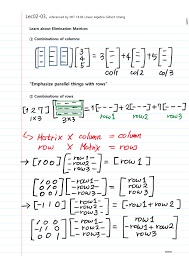 Lec02-03, referenced by MIT 18.06 Linear Algebra Gilbert Strang
Learn about Elimination Matrices
① Combinations of columns
[ - - - ] [ 3 4 5 ] = 3[ ] + 4[ ] + 5[ ]
col1 col2 col3
"Emphasize parallel things with rows"
② Combinations of rows
[ 1 2 7 ] [ ] = 1[---] + 2[---] + 7[---]
1×3 3×3 row1 row2 row3
Matrix × column = column
row × Matrix = row
→ [ 1 0 0 ] [ -row1- -row2- -row3- ] = [ row1 ]
[ 1 0 0 0 1 0 0 0 1 ] [ -row1- -row2- -row3- ] = [ row1 row2 row3 ]
→ [ -1 1 0 ] [ -row1- -row2- -row3- ] = [ -row1 + row2 ]
[ 1 0 0 -1 1 0 0 0 1 ] [ -row1- -row2- -row3- ] = [ row1 -row1 + row2 row3 ]